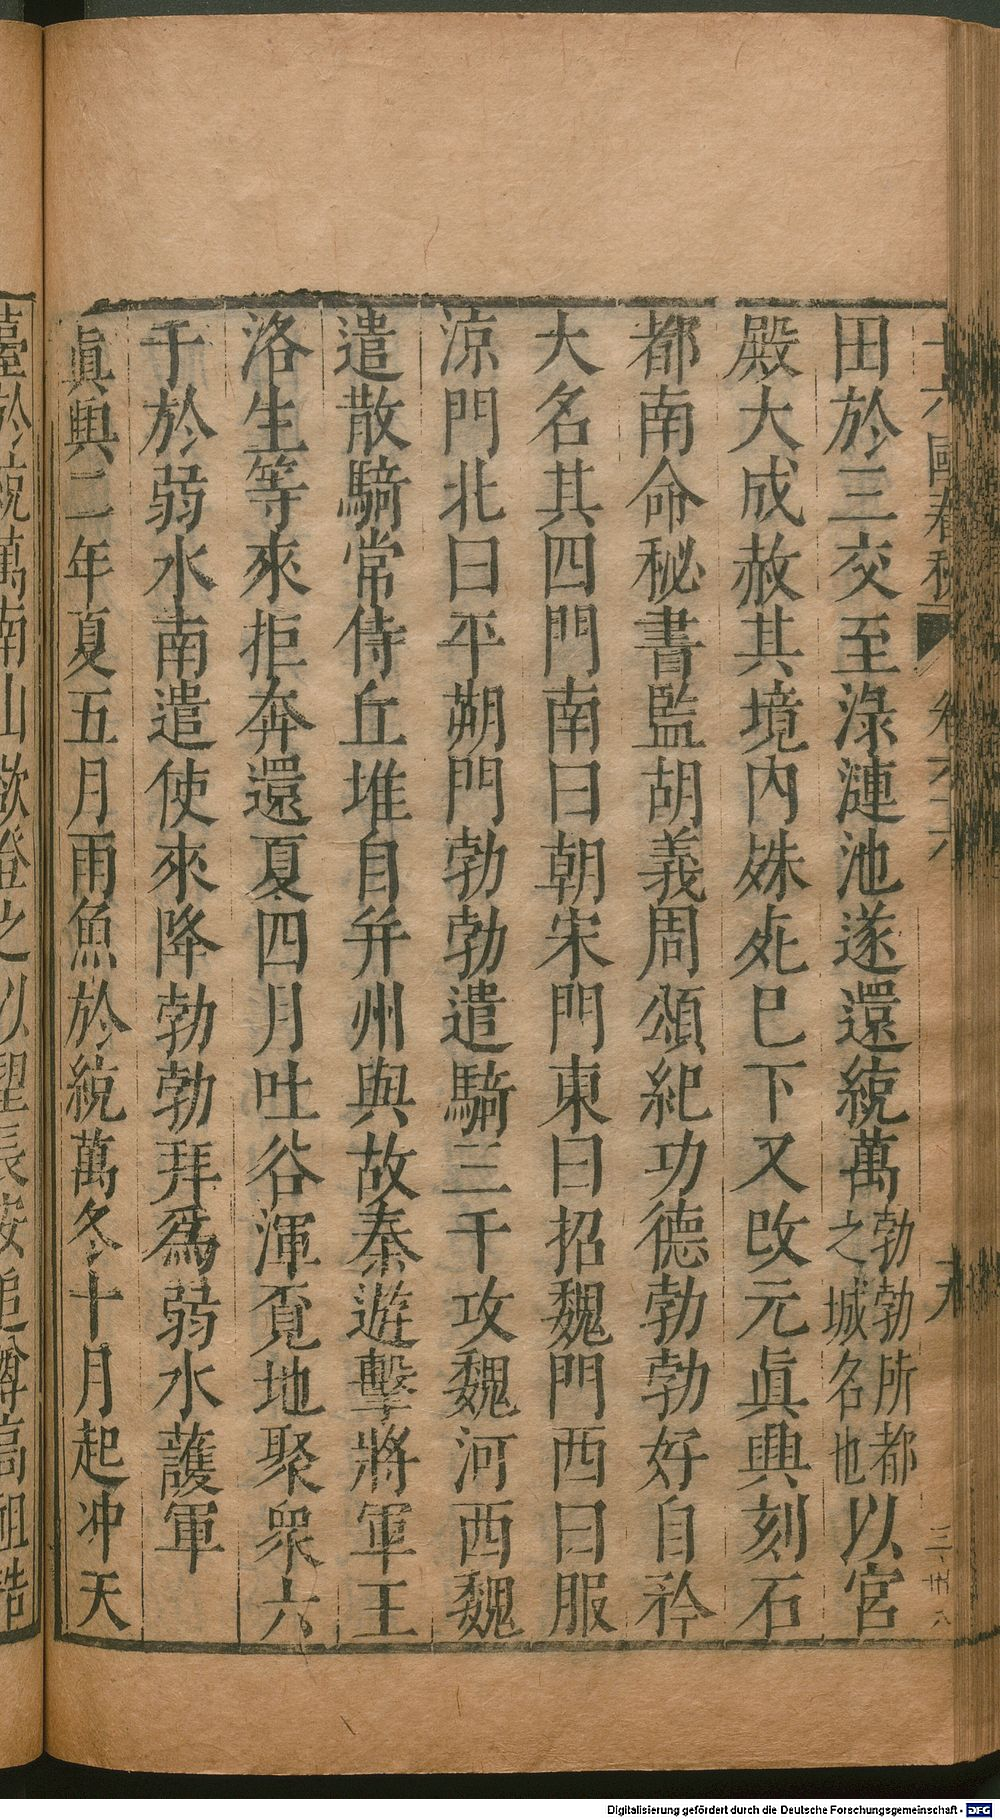 十六國春秋 卷六十六 十九
田於三交至淥漣池遂還統萬勃勃所都之城名也以宮
殿大成赦其境內殊𣦸已下又改元眞興刻石
都南命秘書監胡義周頌紀功德勃勃好自矜
大名其四門南曰朝宋門東曰招魏門西曰服
涼門北曰平朔門勃勃遣騎三千攻魏河西魏
遣散騎常侍丘堆自幷州與故秦遊擊將軍王
洛生等來拒奔還夏四月吐谷渾覓地聚衆六
千於弱水南遣使來降勃勃拜爲弱水護軍
眞興二年夏五月雨魚於統萬冬十月起冲天
臺於統萬南山欲登之以望長安追尊高祖誥
Digitalisierung gefördert durch die Deutsche Forschungsgemeinschaft - DFG